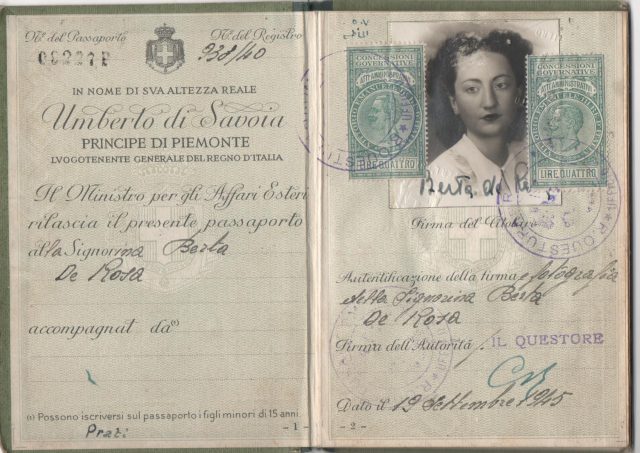 Nº. del Passaporto
Nº. del Registro
238/40
IN NOME DI SVA ALTEZZA REALE
Umberto di Savoia
PRINCIPE DI PIEMONTE
LVOGOTENENTE GENERALE DEL REGNO D'ITALIA
Il Ministro per gli Affari Esteri
rilascia il presente passaporto
alla Signorina Berta
De Rosa
accompagnat da⁽¹⁾
(1) Possono iscriversi sul passaporto i figli minori di 15 anni.
Prati
- 1 -
CONCESSIONI
GOVERNATIVE
ATTI AMMINISTRATIVI
LIRE QUATTRO
CONCESSIONI
GOVERNATIVE
ATTI AMMINISTRATIVI
LIRE QUATTRO
Berta de R
Firma del Titolare
Autentificazione della firma e fotografia
della Signorina Berta
De Rosa
Firma dell'Autorità
IL QUESTORE
Dato il 19 Settembre 1945
- 2 -